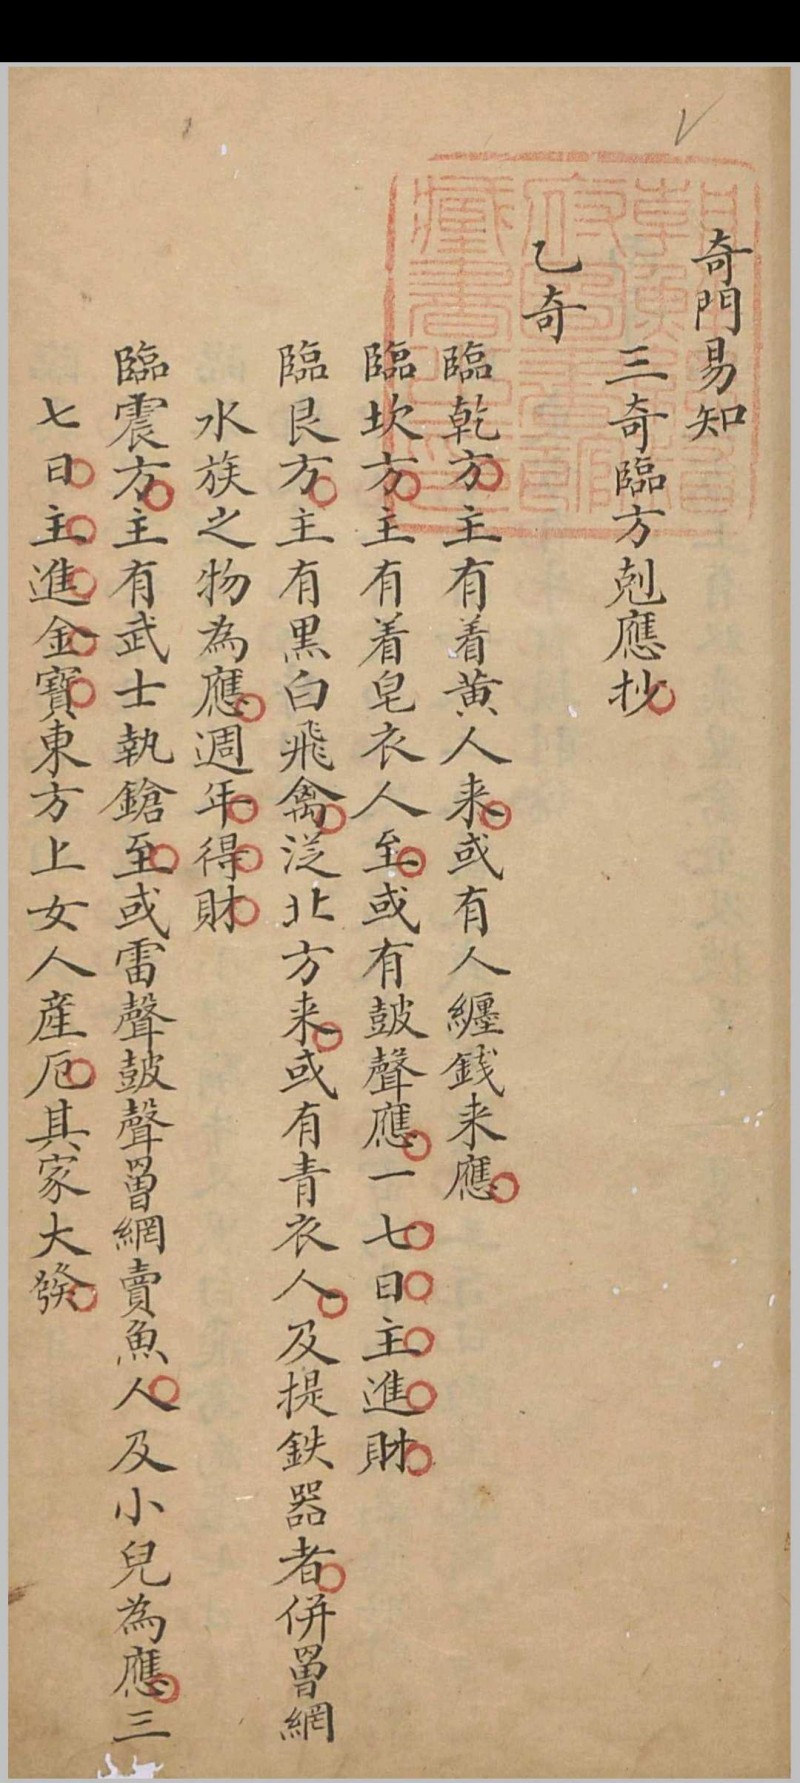 奇門易知
三奇臨方剋應抄
乙奇
臨乾方主有着黄人来或有人纏錢来應
臨坎方主有着皂衣人至或有皷聲應一七日主進財
臨艮方主有黒白飛禽従北方来或有青衣人及提鉄器者併罾網
水族之物為應週年得財
臨震方主有武士執鎗至或雷聲皷聲罾網賣魚人及小兒為應三
七日主進金寶東方上女人産厄其家大發